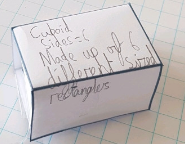 Cuboid
Sides=6
Made up of 6
different sized
rectangles